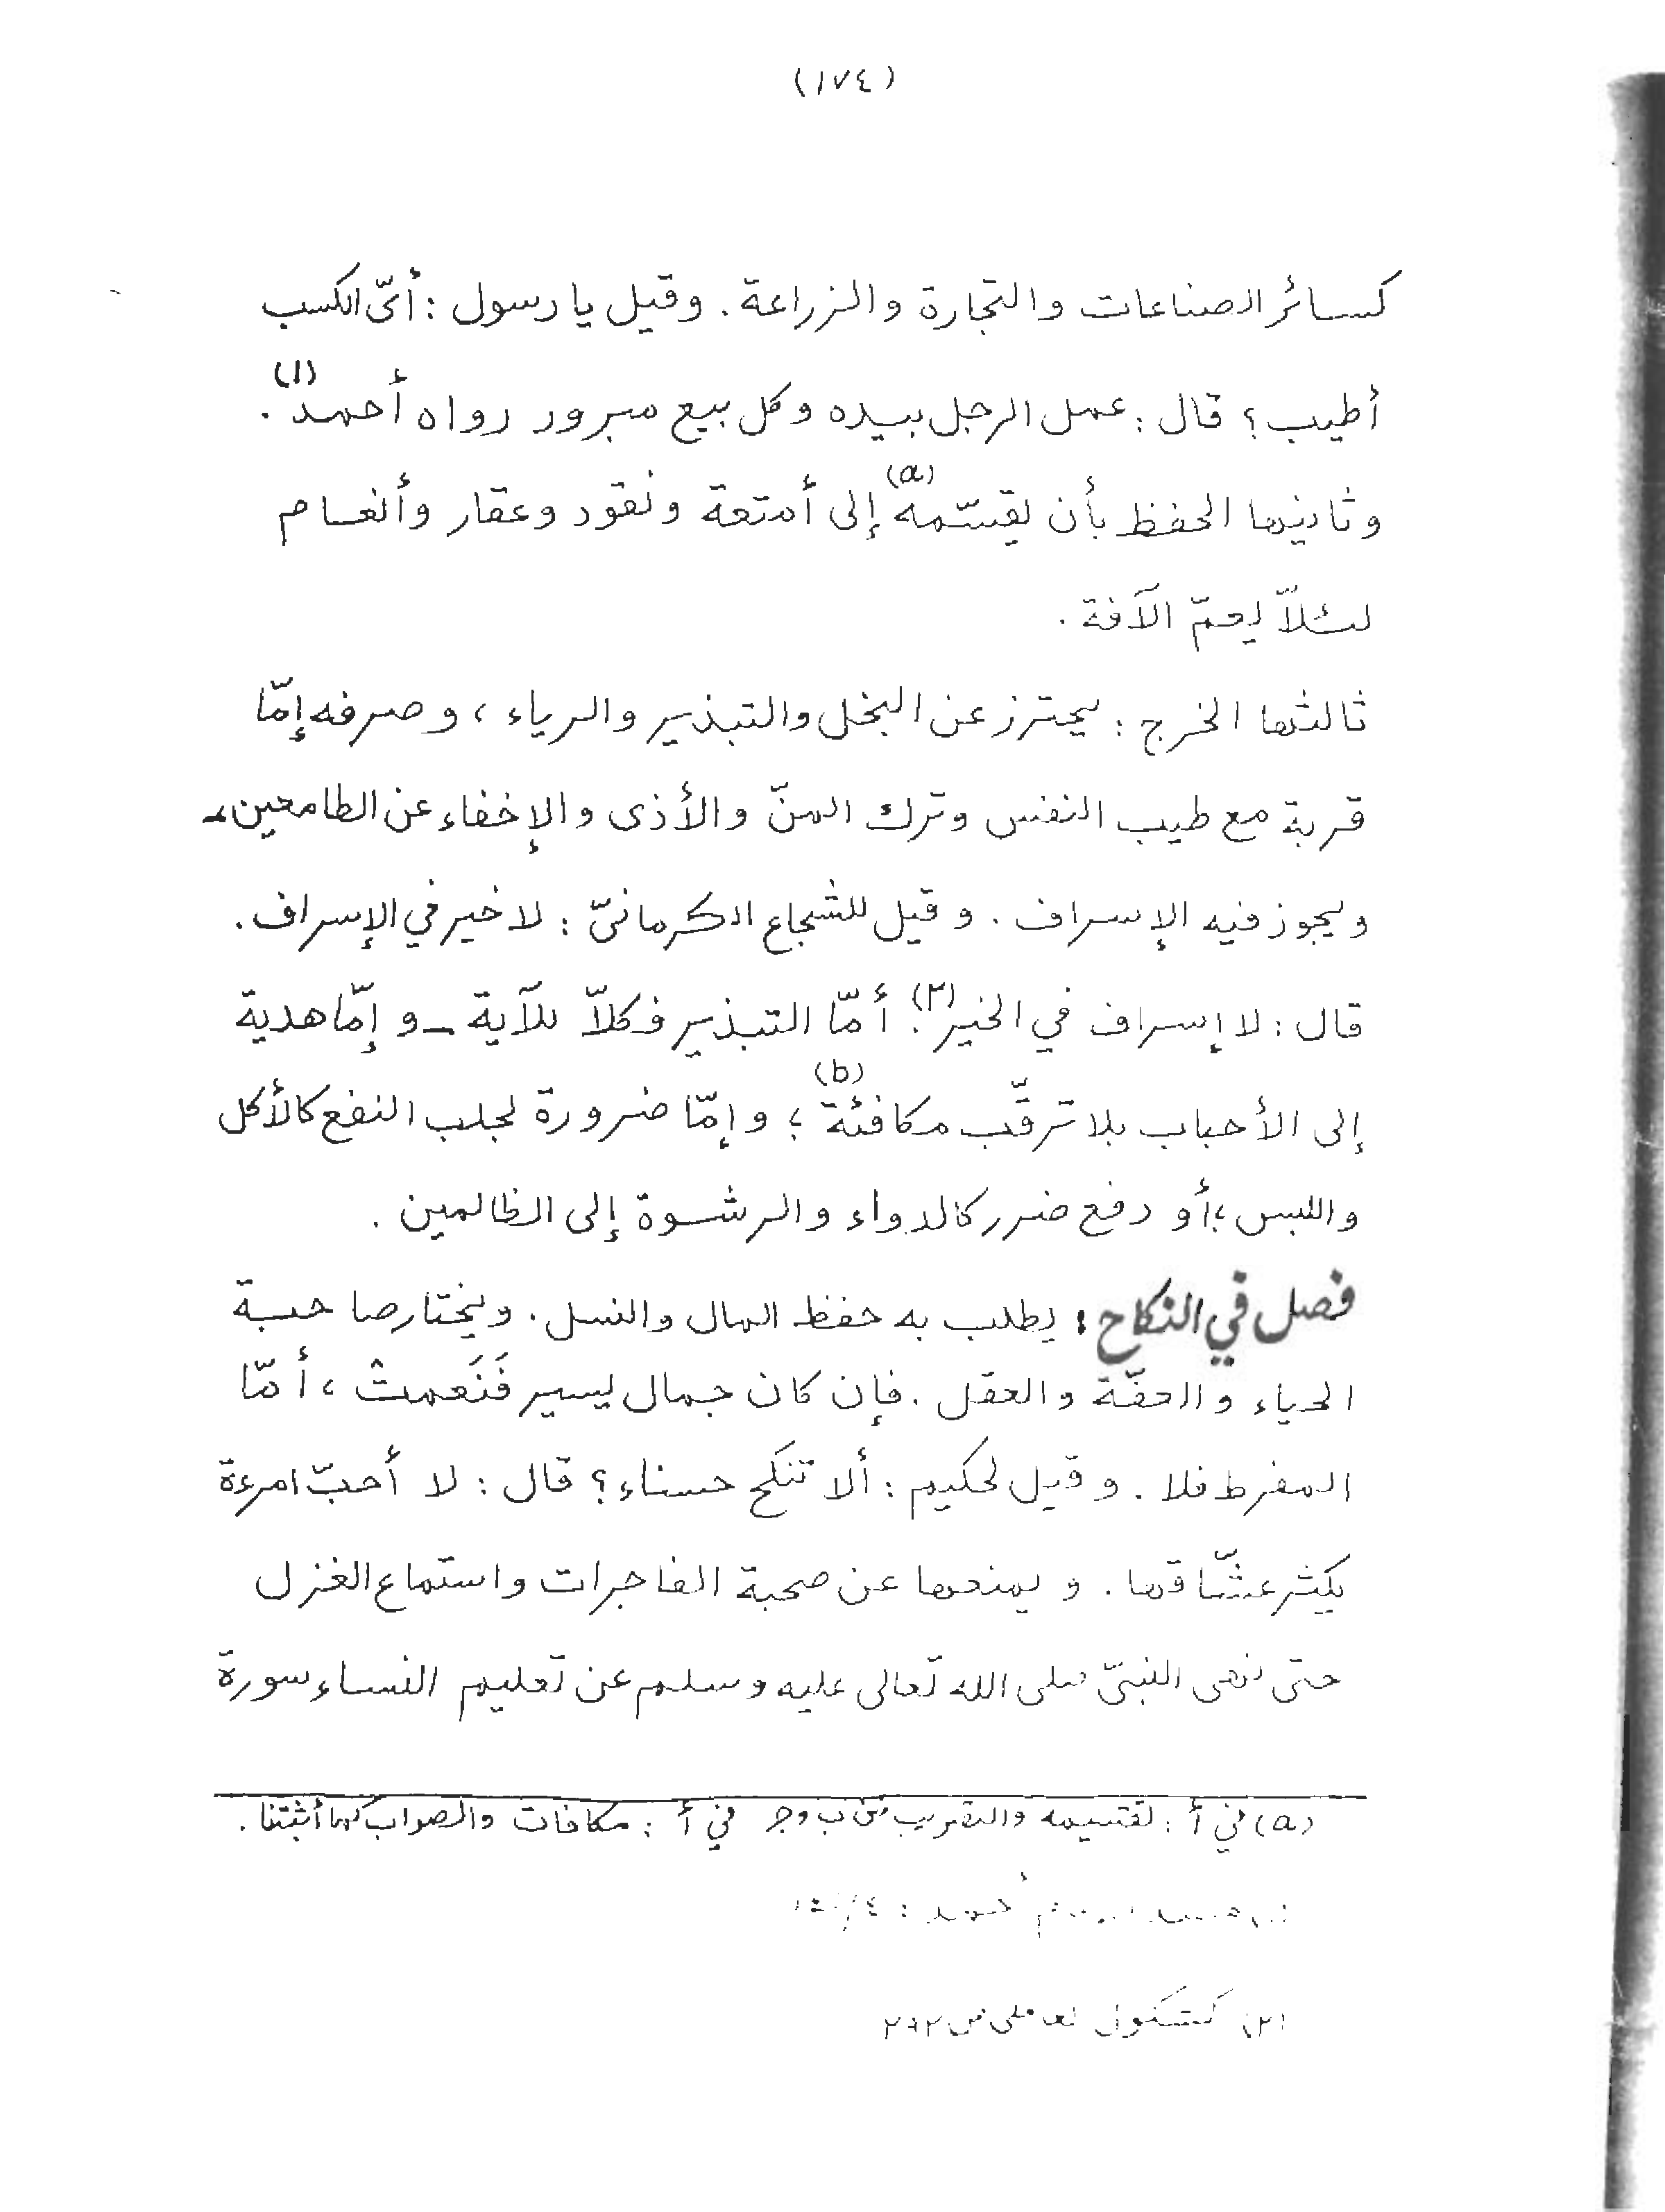 (١٧٤)
كسائر الصناعات والتجارة والزراعة. وقيل يا رسول : أىّ الكسب
أطيب؟ قال : عمل الرجل بيده وكل بيع مبرور رواه أحمد(١).
وثانيها الحفظ بأن يقسّمه(a) إلى أمتعة ونقود وعقار وأنعام
لئلاّ يعمّ الآفة .
ثالثها الخرج : يحترز عن البخل والتبذير والرياء ، وصرفه إمّا
قربة مع طيب النفس وترك المنّ والأذى والإخفاء عن الطامعين،
ويجوز فيه الإسراف . وقيل للشجاع الكرمانىّ : لا خير في الإسراف.
قال : لا إسراف في الخير(٢). أمّا التبذير فكلاّ للآية ــ و إمّا هدية
إلى الأحباب بلا ترقّب مكافئة(b) ؛ وإمّا ضرورة لجلب النفع كالأكل
واللبس ؛ أو دفع ضرر كالدواء والرشوة إلى الظالمين .
فصل في النكاح : يطلب به حفظ المال والنسل. ويختار صاحبة
الحياء والعفّة والعقل . فإن كان جمال يسير فَنَعمتْ ، أمّا
المفرط فلا . وقيل لحكيم : ألا تنكح حسناء؟ قال : لا أحبّ امرءة
يكثر عشّاقها . و يمنعها عن صحبة الفاجرات واستماع الغزل
حتى نهى النبىّ صلى الله تعالى عليه وسلم عن تعليم النساء سورة
(a) في أ : لقسيمه والتصويب من ب وج في أ : مكافات والصواب كما أثبتنا .
أحمد : ٤/
(٢) كشكول لعاملى ص